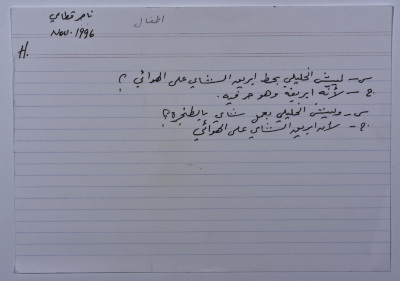 ناصر قطامي
Nov. 1996
H.
س - ليش الخليلي بحط ابريق الشاي على الهوائي ؟
ج - لأنه ابريقه وهو حر فيه.
س - وليش الخليلي بعمل شاي بالطنجرة؟
ج - لانه ابريق الشاي على الهوائي